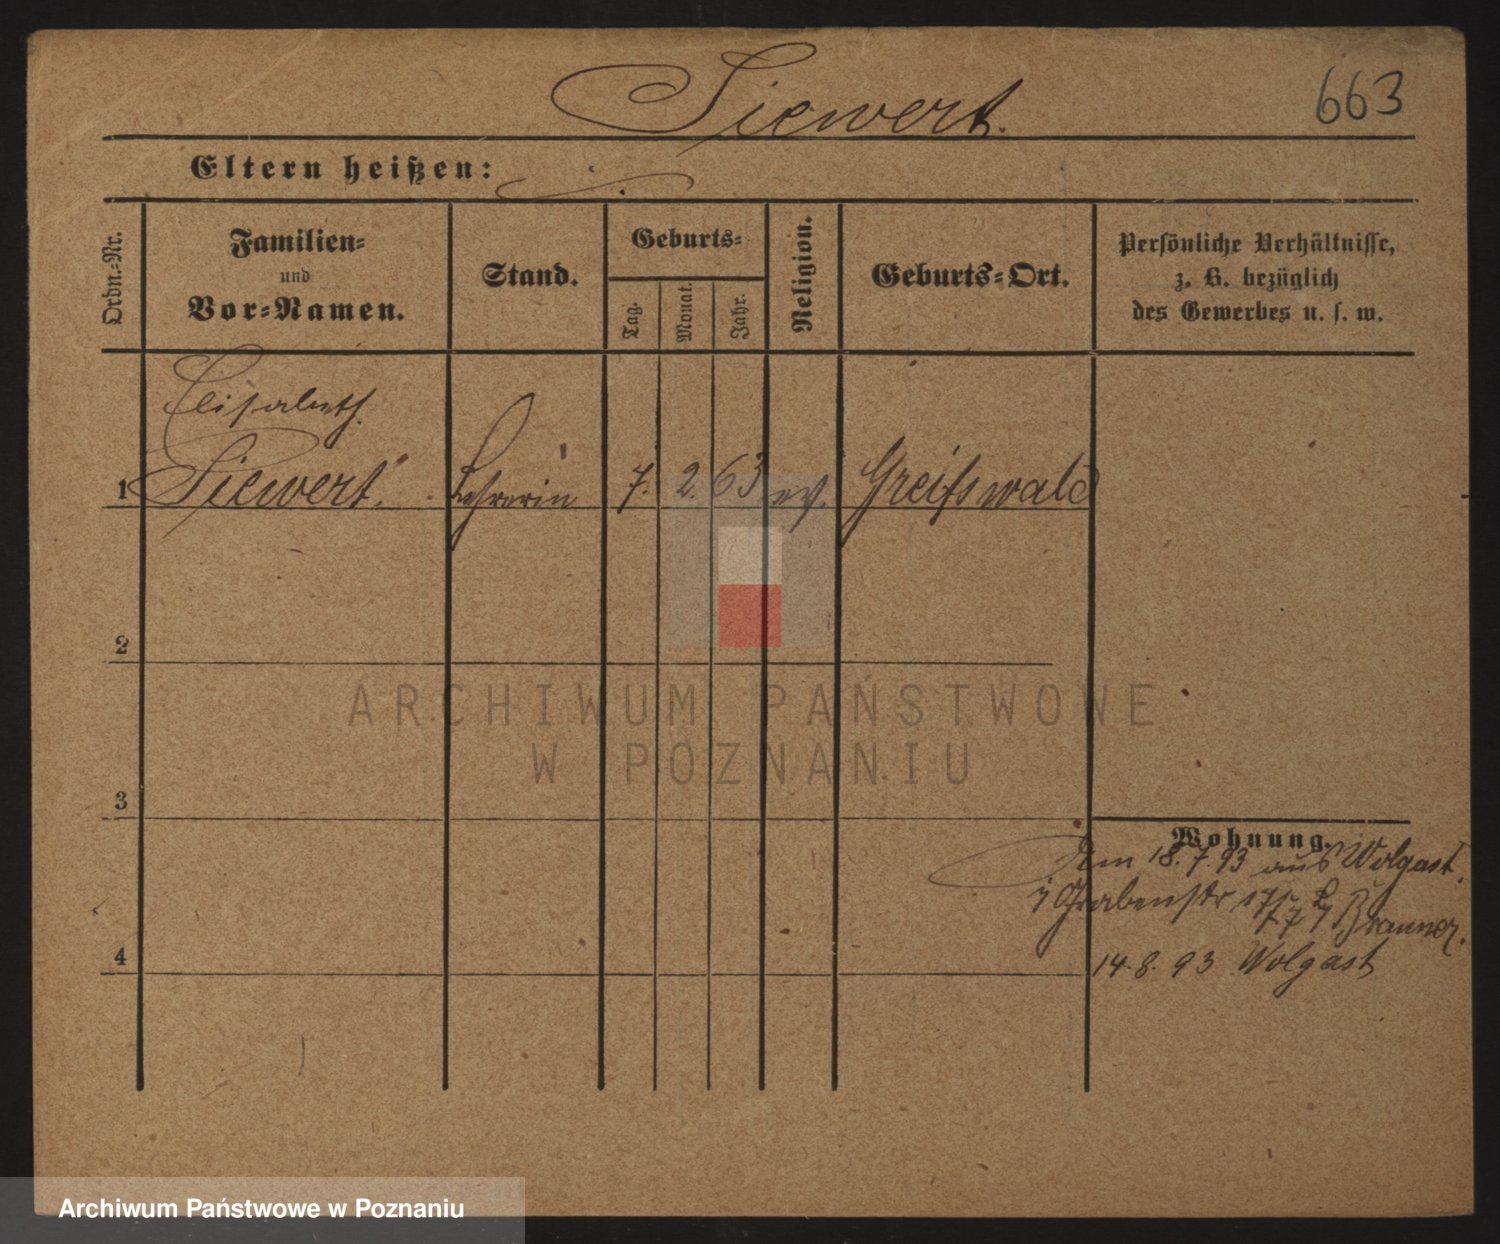 Siewert.
663
Eltern heißen:
Ordn.-Nr.
Familien-
und
Vor-Namen.
Stand.
Geburts-
Tag.
Monat.
Jahr.
Religion.
Geburts-Ort.
Persönliche Verhältnisse,
z. B. bezüglich
des Gewerbes u. s. w.
Elisabeth
1 Siewert. Lehrerin 7. 2. 63 ev. Greifswald
2
3
4
Wohnung.
18.7.93 aus Wolgast.
Grabenstr
14.8.93 Wolgast
ARCHIWUM PAŃSTWOWE
W POZNANIU
Archiwum Państwowe w Poznaniu